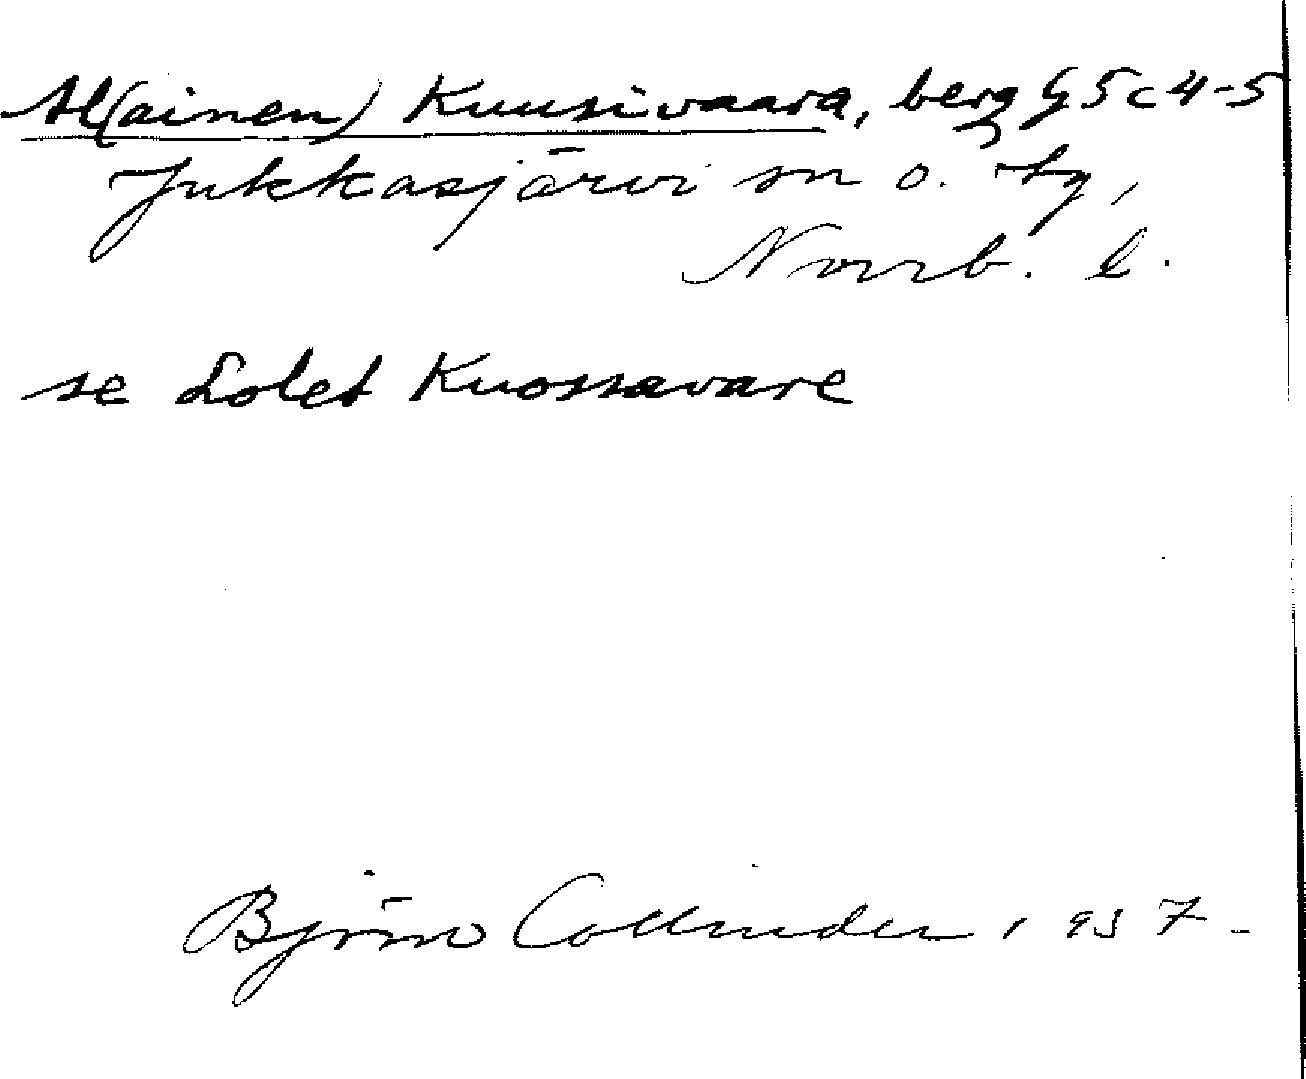 Al(ainen) Kuusivaara, berg G5c4-5
Jukkasjärvi sn o. tg,
Norrb. l.
se Lolet Kuossavare
Björn Collinder 1937-